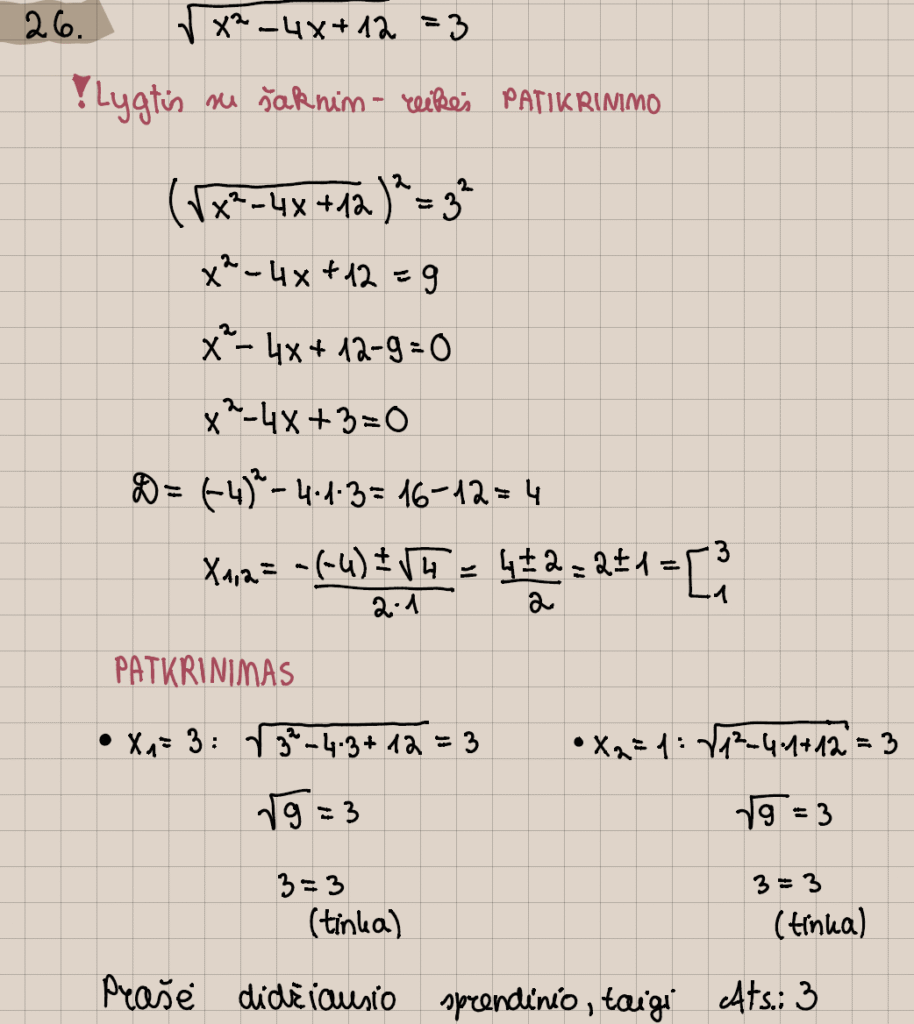 26. √(x² - 4x + 12) = 3
! Lygtis su šaknim - reikei PATIKRINIMO
(√(x² - 4x + 12))² = 3²
x² - 4x + 12 = 9
x² - 4x + 12 - 9 = 0
x² - 4x + 3 = 0
D = (-4)² - 4·1·3 = 16 - 12 = 4
x₁,₂ = (-(-4) ± √4)/(2·1) = (4 ± 2)/2 = 2 ± 1 = [3 1
PATKRINIMAS
• x₁ = 3 : √(3² - 4·3 + 12) = 3
√9 = 3
3 = 3
(tinka)
• x₂ = 1 : √(1² - 4·1 + 12) = 3
√9 = 3
3 = 3
(tinka)
Prašė didžiausio sprendinio, taigi Ats.: 3